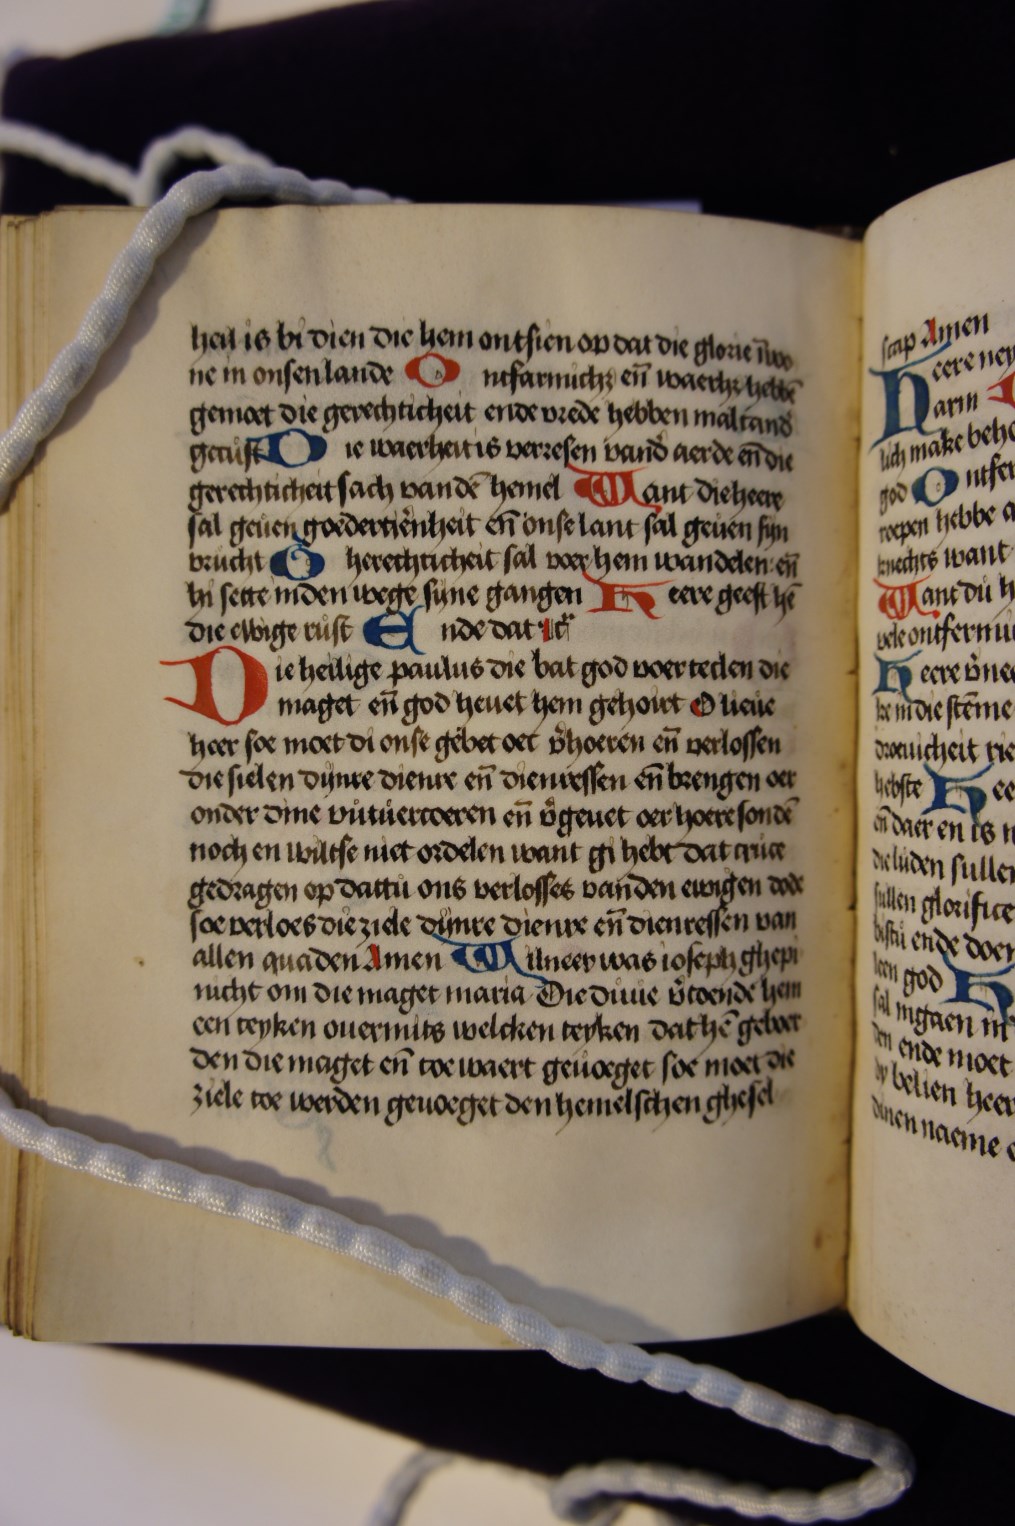 heil is bi dien die hem ontsien op dat die glorie iwo
ne in onsen lande Ontfarmich eñ waerh hebbē
gemoet die gerechticheit ende vrede hebben malcand
gecust Die waerheit is verresen vand aerde eñ die
gerechticheit sach vandē hemel Want die heere
sal geuen goedertierēheit eñ onse lant sal geuen sijn
vrucht Gherechticheit sal voer hem wandelen eñ
hi sette inden wege sijne gangen Heere geeft hē
die ewige rust Ende dat
Die heilige paulus die bat god voer teclen die
maget eñ god heuet hem gehoirt O lieue
heer soe moet di onse gebet oec v̄hoeren eñ verlossen
die sielen dijnre dienre eñ dienressen eñ brengen oer
onder dine vutuercoeren eñ v̄geuet oer hoere sondē
noch en wiltse niet ordelen want gi hebt dat cruce
gedragen op dattu ons verlosses vanden ewigen dode
soe verloes die ziele dijnre dienre eñ dienressen van
allen quaden Amen Wilneer was ioseph ghepi
nicht om die maget maria Die duue v̄toende hem
een teyken ouermits welcken teyken dat hē geboer
den die maget eñ toe waert geuoeget soe moet die
ziele toe werden geuoeget den hemelschen ghesel
scap Amen
Heere ney
Darm
lich make behe
god Ontfer
roepen hebbe a
knechts want
Want du h
vele ontfermi
Heere v̄nee
ke in die stēme
droeuicheit rie
hebste Hee
eñ daer en is n
die luden sullen
sullen glorifice
bistu ende doen
leen god H
sal ingaen in
den ende moet
by belien heer
dinen naeme e